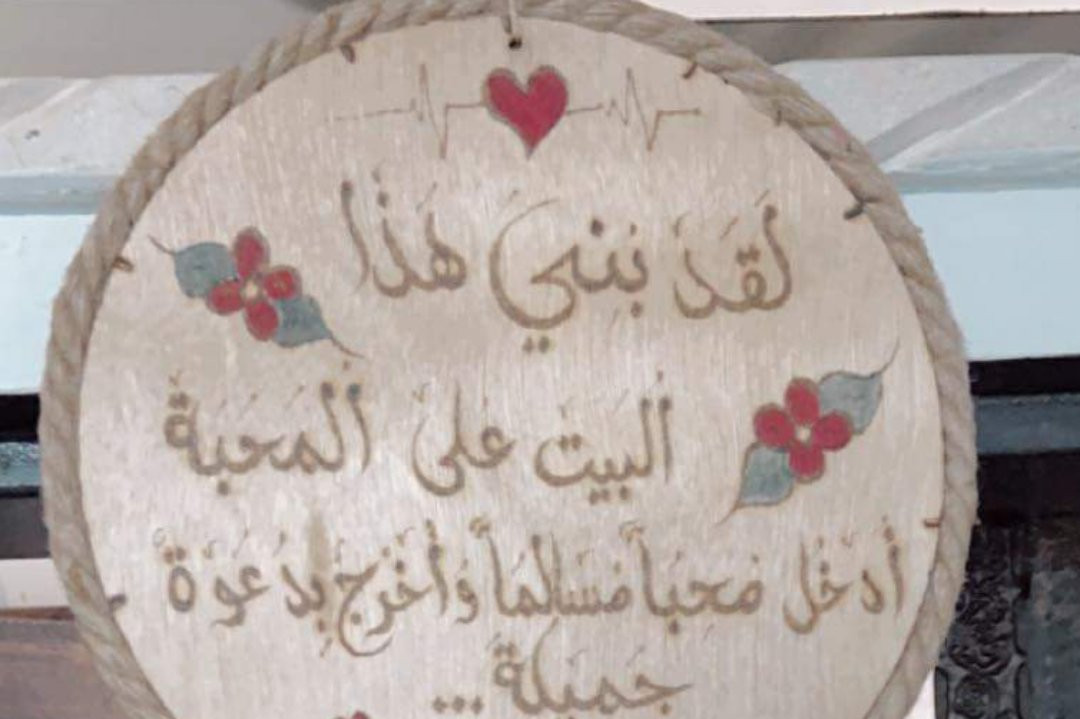 لَقَدَ بُنيَ هَذَا
البَيتَ عَلَى المَحَبَة
أدخَل مَحبَاً مَسَالمَاً وَأخرَج بِدَعوَة
جَميَلة...